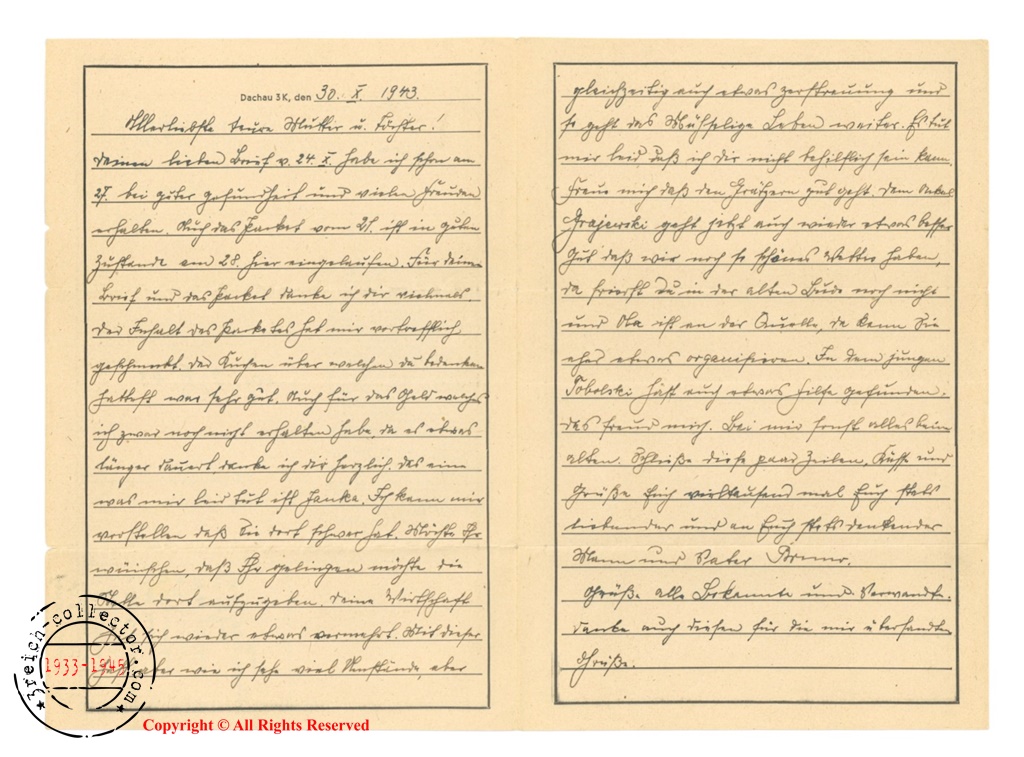 Dachau 3K, den 30. X. 1943.
Allerliebste teure Mutter u. Tochter!
Deinen lieben Brief v. 24. X. habe ich schon am
27. bei guter gesundheit und vielen Freuden
erhalten. Auch das Packet vom 21. ist in guten
Zustande am 28. hier eingelaufen. Für deinen
Brief und das Packet danke ich dir vielmals
Der Inhalt des Packetes hat mir vortrefflich
geschmekt. Der Kuchen über welchen du bedenken
hattest war sehr gut. Auch für das Geld welches
ich zwar noch nicht erhalten habe, da es etwas
länger dauert danke ich dir herzlich. Das eine
was mir leid tut ist Janka. Ich kann mir
vorstellen daß Sie dort schwer hat. Möchte Ihr
wünschen, daß Ihr gelingen möchte die
Stelle dort aufzugeben. Deine Wirtschaft
sich wieder etwas vermehrt. Mit dieser
aber wie ich sehe viel Umstände, aber
gleichzeitig auch etwas zerstreuung und
so geht das Mühselige Leben weiter. Es tut
mir leid daß ich dir nicht behilflich sein kann.
Freue mich daß den Grätzern gut geht. Dem Onkel
Grajewski geht jetzt auch wieder etwas besser
Gut daß wir noch so schönes Wetter haben,
da frierst Du in der alten Bude noch nicht
und Ola ist an der Quelle, da kann Sie
eher etwas organisieren. In dem jungen
Tobolski hast auch etwas hilfe gefunden,
das freud mich. Bei mir sonst alles beim
alten. Schließe diese paar Zeilen, Küsse und
Grüße Euch vieltausend mal Euch stets
liebender und an Euch stets denkender
Mann und Vater Bruno.
Grüße alle Bekannte und Verwandte.
Danke auch diesen für die mir übersandten
Grüße.
3reich-collector.com
1933-1945
Copyright © All Rights Reserved